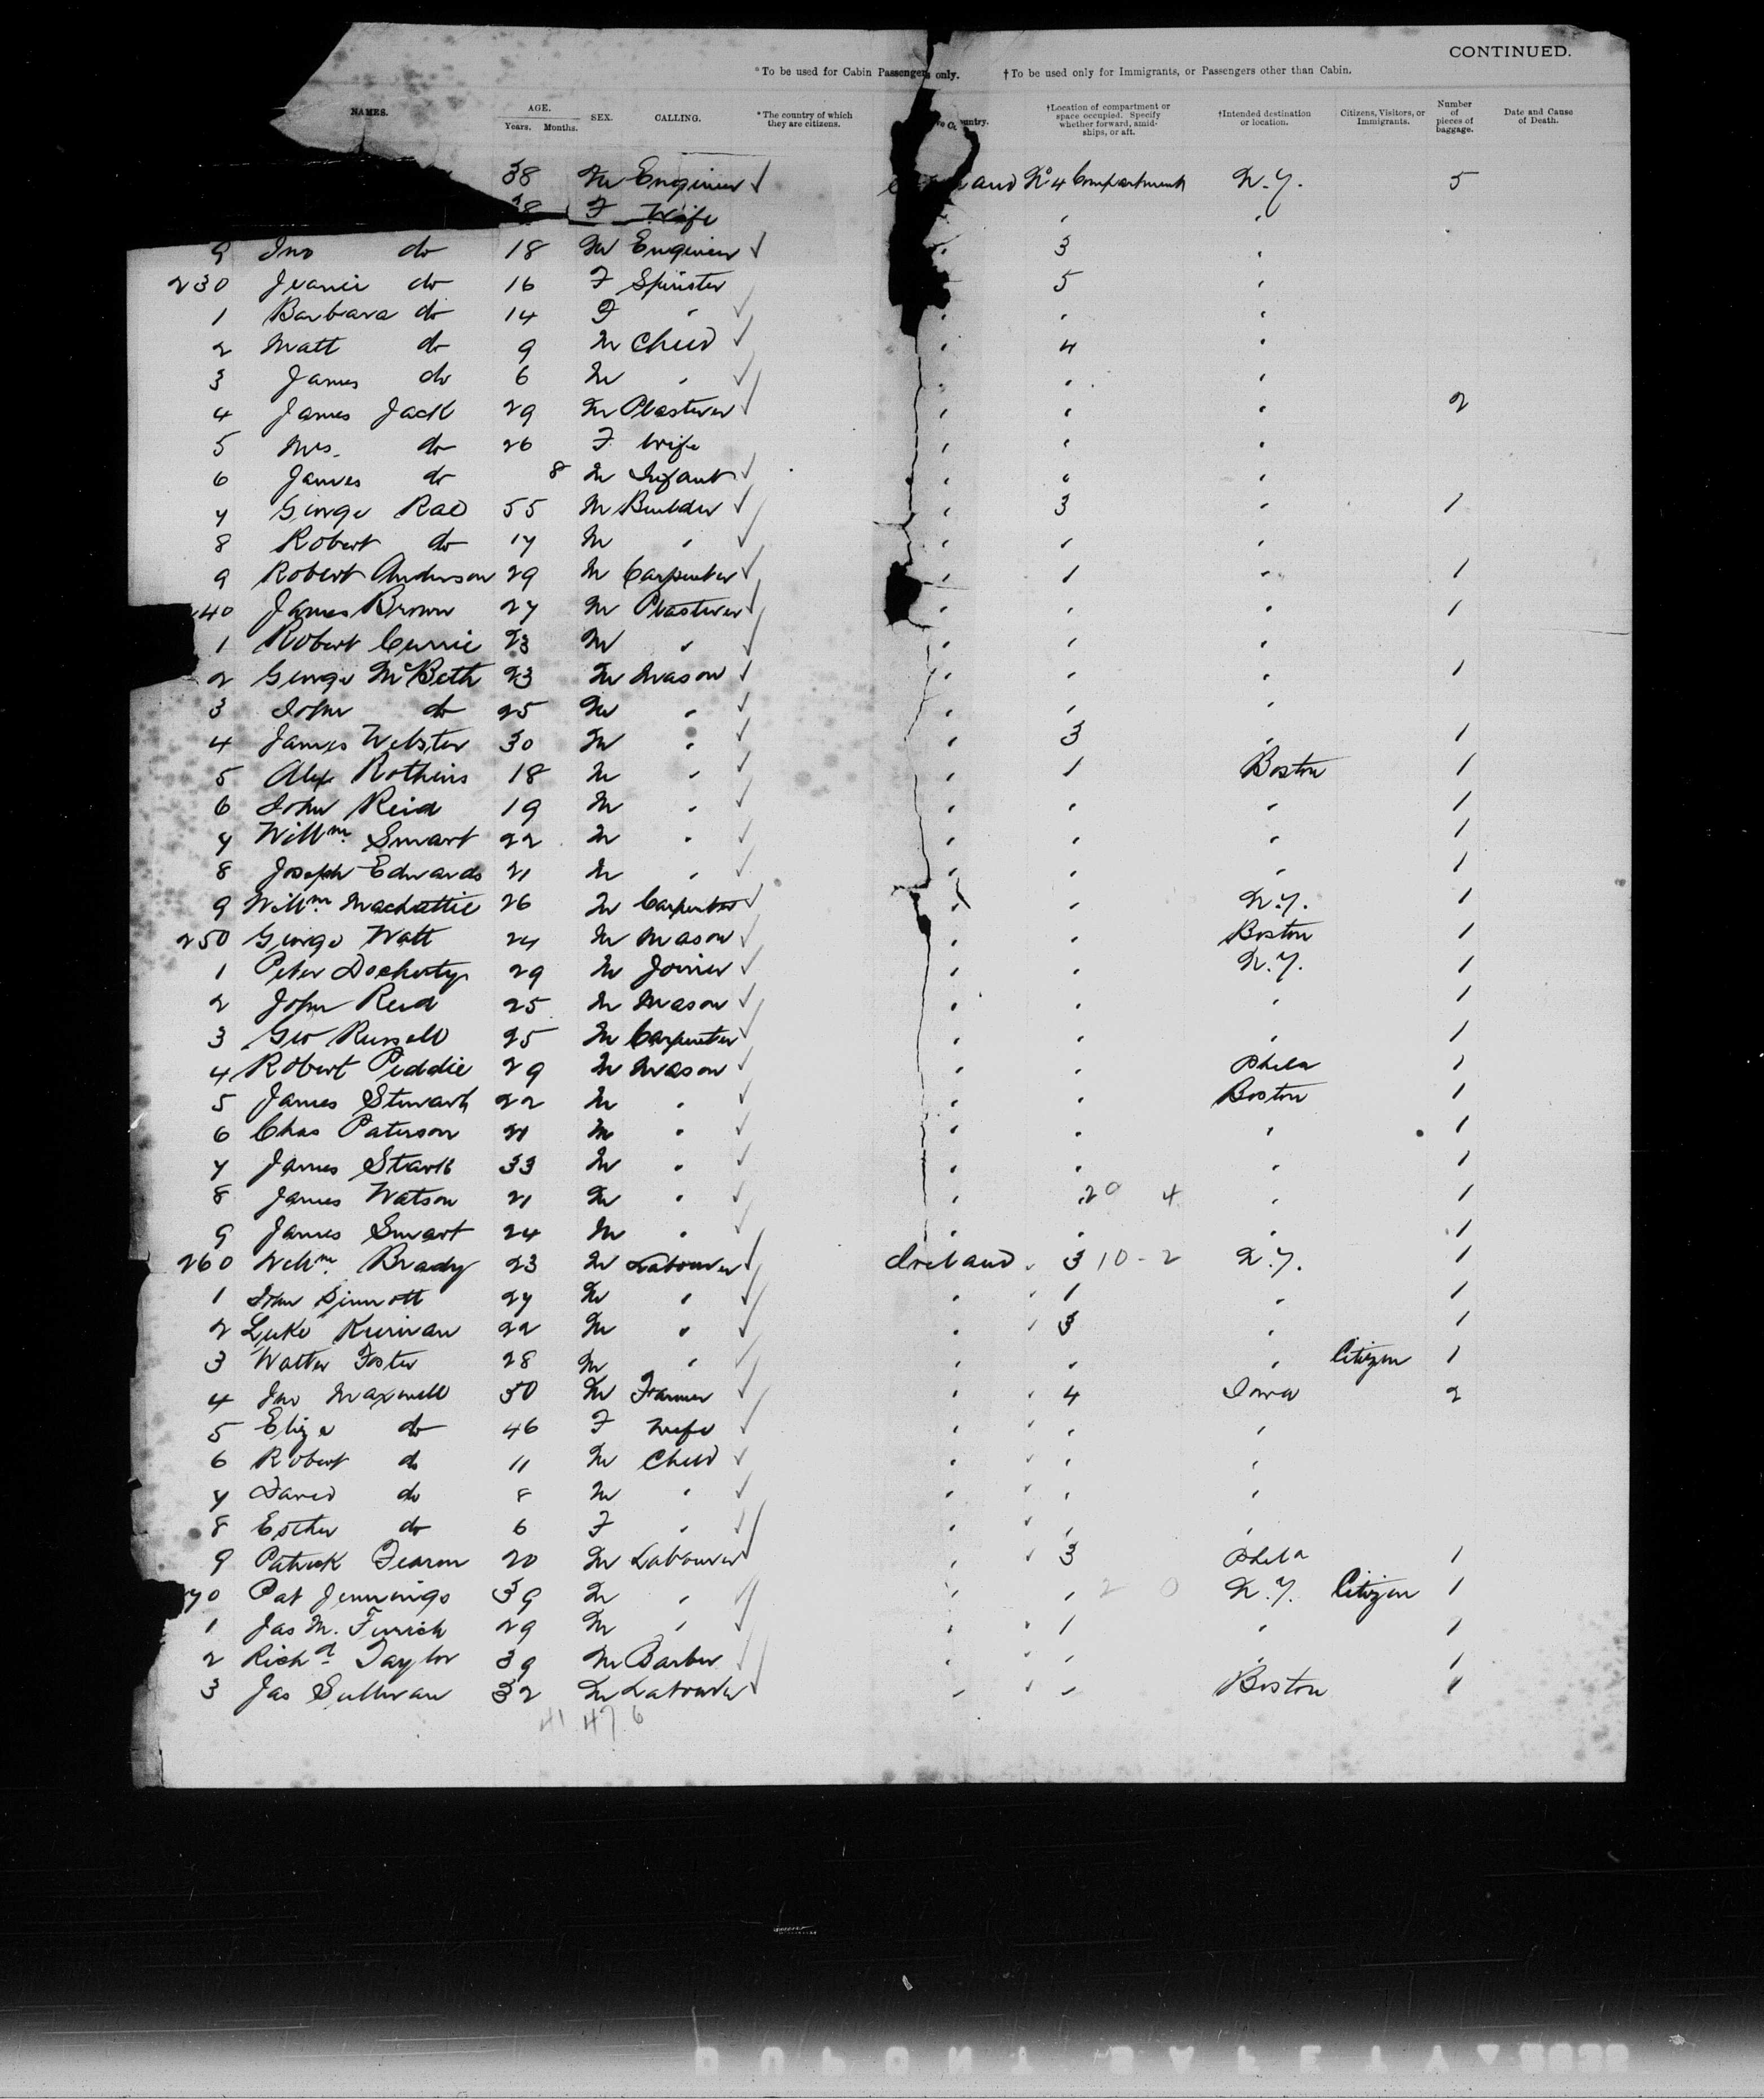 CONTINUED.
*To be used for Cabin Passengers only. †To be used only for Immigrants, or Passengers other than Cabin.
NAMES. AGE. Years. Months. SEX. CALLING. *The country of which they are citizens. ve Country. †Location of compartment or space occupied. Specify whether forward, amidships, or aft. †Intended destination or location. Citizens, Visitors, or Immigrants. Number of pieces of baggage. Date and Cause of Death.
38 M Engineer ✓ and No 4 Compartment N.Y. 5
8 F Wife " "
9 Jno do 18 M Engineer ✓ " 3 "
230 Jeanie do 16 F Spinster 5 "
1 Barbara do 14 F " ✓ " " "
2 Matt do 9 M Child ✓ " 4 "
3 James do 6 M " ✓ " " "
4 James Jack 29 M Plasterer ✓ " " " 2
5 Mrs. do 26 F Wife " " "
6 James do 8 M Infant ✓ " " "
7 George Rae 55 M Builder ✓ " 3 " 1
8 Robert do 17 M " ✓ " " "
9 Robert Anderson 29 M Carpenter ✓ " 1 " 1
40 James Brown 27 M Plasterer ✓ " " " 1
1 Robert Currie 23 M " ✓ " " "
2 George McBeth 23 M Mason ✓ " " " 1
3 John do 25 M " ✓ " " "
4 James Webster 30 M " ✓ " 3 " 1
5 Alex 18 M " ✓ " 1 Boston 1
6 John Reid 19 M " ✓ " " " 1
7 Willm. Smart 22 M " ✓ " " " 1
8 Joseph Edwards 21 M " ✓ " " " 1
9 Willm. Machattie 26 M Carpenter ✓ " " N.Y. 1
250 George Watt 24 M Mason ✓ " " Boston 1
1 Peter Docherty 29 M Joiner ✓ " " N.Y. 1
2 John Reid 25 M Mason ✓ " " " 1
3 Geo Russell 25 M Carpenter ✓ " " " 1
4 Robert Peddie 29 M Mason ✓ " " Phila 1
5 James Stewart 22 M " ✓ " " Boston 1
6 Chas Paterson 21 M " ✓ " " " 1
7 James Stark 33 M " ✓ " " " 1
8 James Watson 21 M " ✓ " 20 4 " 1
9 James Smart 24 M " ✓ " " " 1
260 Willm. Brady 23 M Labourer ✓ Ireland " 3 10-2 N.Y. 1
1 John Sinnott 27 M " ✓ " " 1 " 1
2 Luke Kirwan 22 M " ✓ " " 3 " 1
3 Walter Foster 28 M " ✓ " " " Citizen 1
4 Jno Maxwell 50 M Farmer ✓ " " 4 Iowa 2
5 Eliza do 46 F Wife ✓ " " " "
6 Robert do 11 M Child ✓ " " " "
7 David do 8 M " ✓ " " " "
8 Esther do 6 F " ✓ " " " "
9 Patrick Fearon 20 M Labourer ✓ " " 3 Phila 1
70 Pat Jennings 39 M " ✓ " " 2 0 N.Y. Citizen 1
1 Jas M. 29 M " ✓ " " 1 " 1
2 Richd Taylor 39 M Barber ✓ " " " " 1
3 Jas Sullivan 32 M Labourer ✓ " " " Boston 1
41 47 6
DUPONT SAFETY